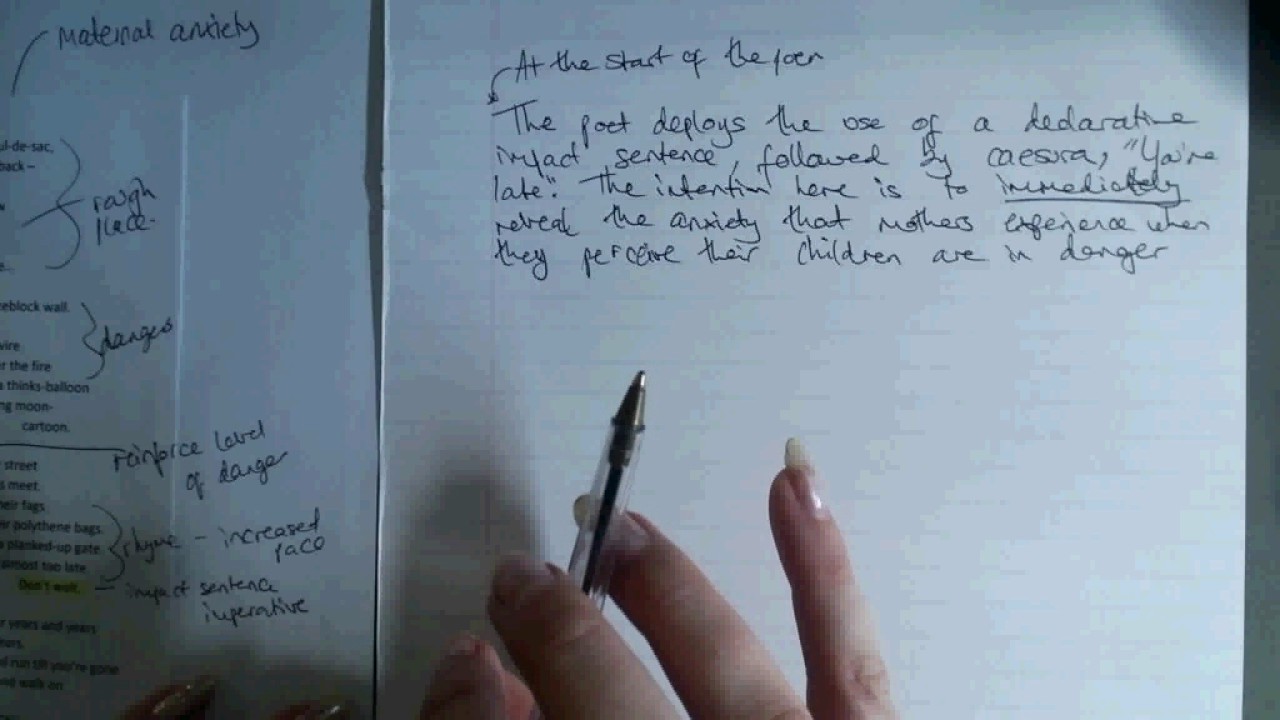 Maternal anxiety
ul-de-sac,
back –
rough
place-
eblock wall.
wire
r the fire
a thinks-balloon
ng moon-
cartoon.
dangers
reinforce level
of danger
street
s meet.
heir fags
ir polythene bags.
a planked-up gate
almost too late.
Don't wait.
rhyme – increased
pace
– impact sentence
imperative
r years and years
ears.
d run till you're gone
and walk on
At the start of the poem
The poet deploys the use of a declarative
impact sentence, followed by caesura, "You're
late". The intention here is to immediately
reveal the anxiety that mothers experience when
they perceive their children are in danger